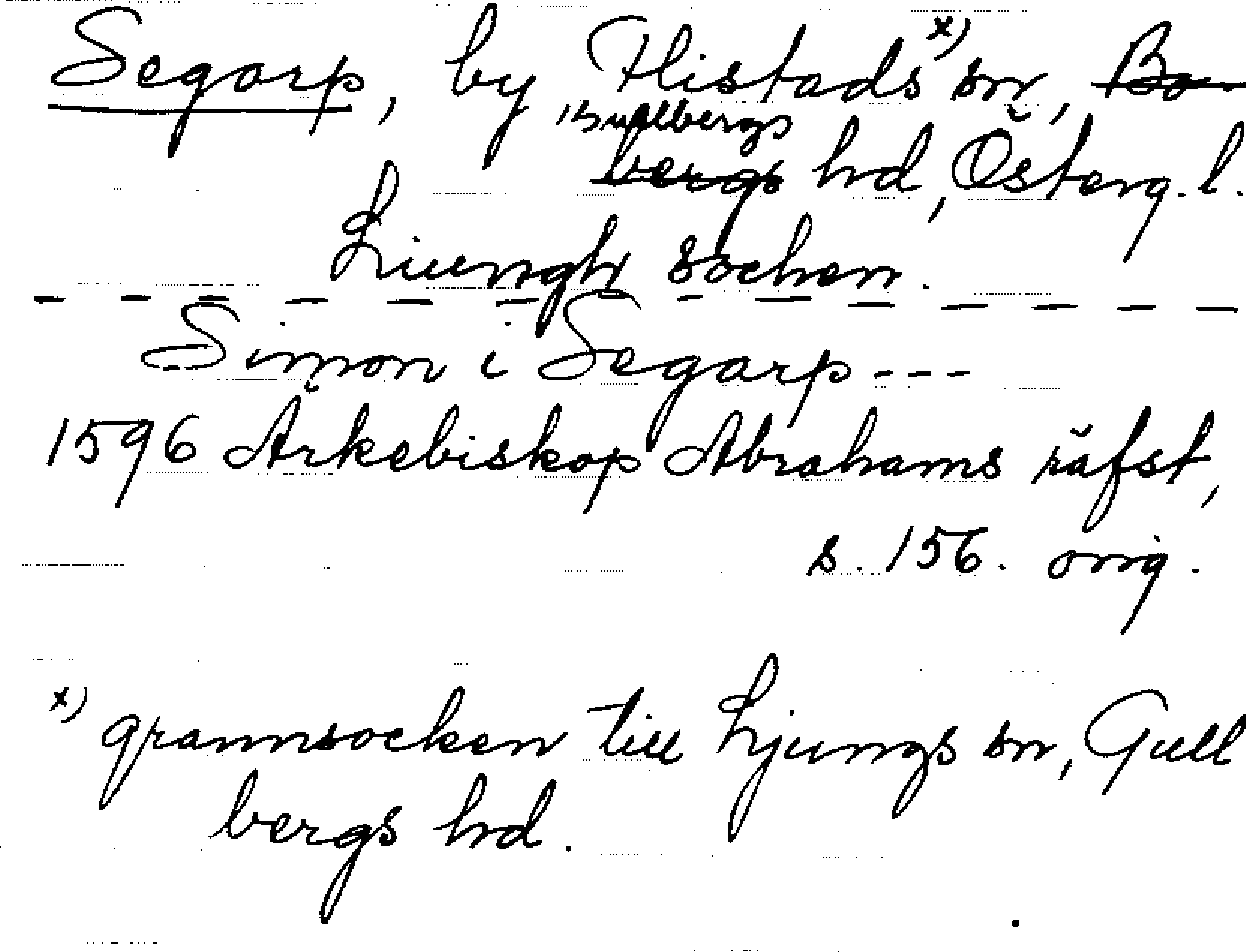 Segarp, by Flistads x) sn, Bo-
Gullbergs
bergs hd, Österg. l.
Liungh sochen.
- - - - - - - - - - - - - -
Simon i Segarp---
1596 Ärkebiskop Abrahams räfst,
s. 156. orig.
x) grannsocken till Ljungs sn, Gull
bergs hd.